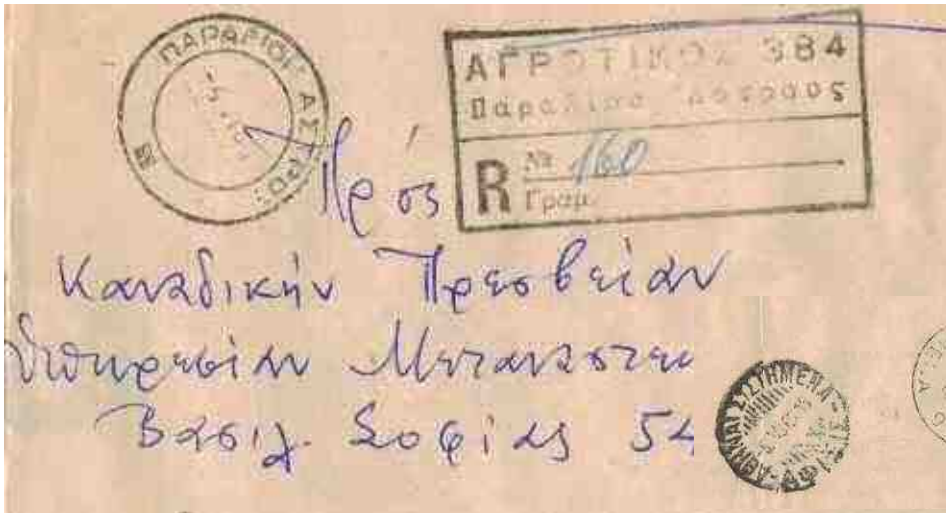 ΠΑΡΑΛΙΟΝ ΑΣΤΡΟΣ
ΑΓΡΟΤΙΚΟΣ 384
Παράλιον Άστρους
R № 160
Γραμ.
Πρός
Καναδικήν Πρεσβείαν
Υπηρεσίαν Μεταναστεύ
Βασιλ. Σοφίας 54
ΑΘΗΝΑΙ ΣΥΣΤΗΜΕΝΑ ΑΦΙΞΙΣ